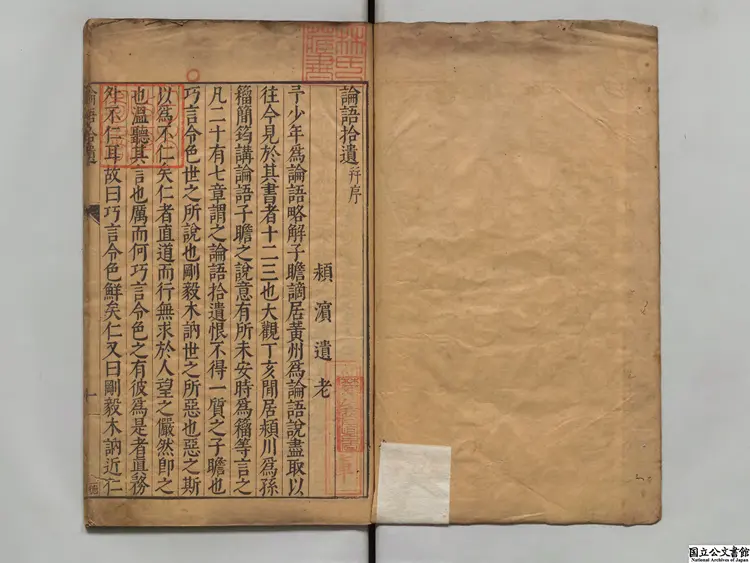 林氏藏書
論語拾遺 幷序
潁濵遺老
予少年爲論語略解子瞻謫居黃州爲論語說盡取以
往今見於其書者十二三也大觀丁亥閒居潁川爲孫
籒簡筠講論語子瞻之說意有所未安時爲籒等言之
凡二十有七章謂之論語拾遺恨不得一質之子瞻也
巧言令色世之所說也剛毅木訥世之所惡也惡之斯
以爲不仁矣仁者直道而行無求於人望之儼然卽之
也溫聽其言也厲而何巧言令色之有彼爲是者直務
外不仁耳故曰巧言令色鮮矣仁又曰剛毅木訥近仁
論語拾遺
一
国立公文書館
National Archives of Japan